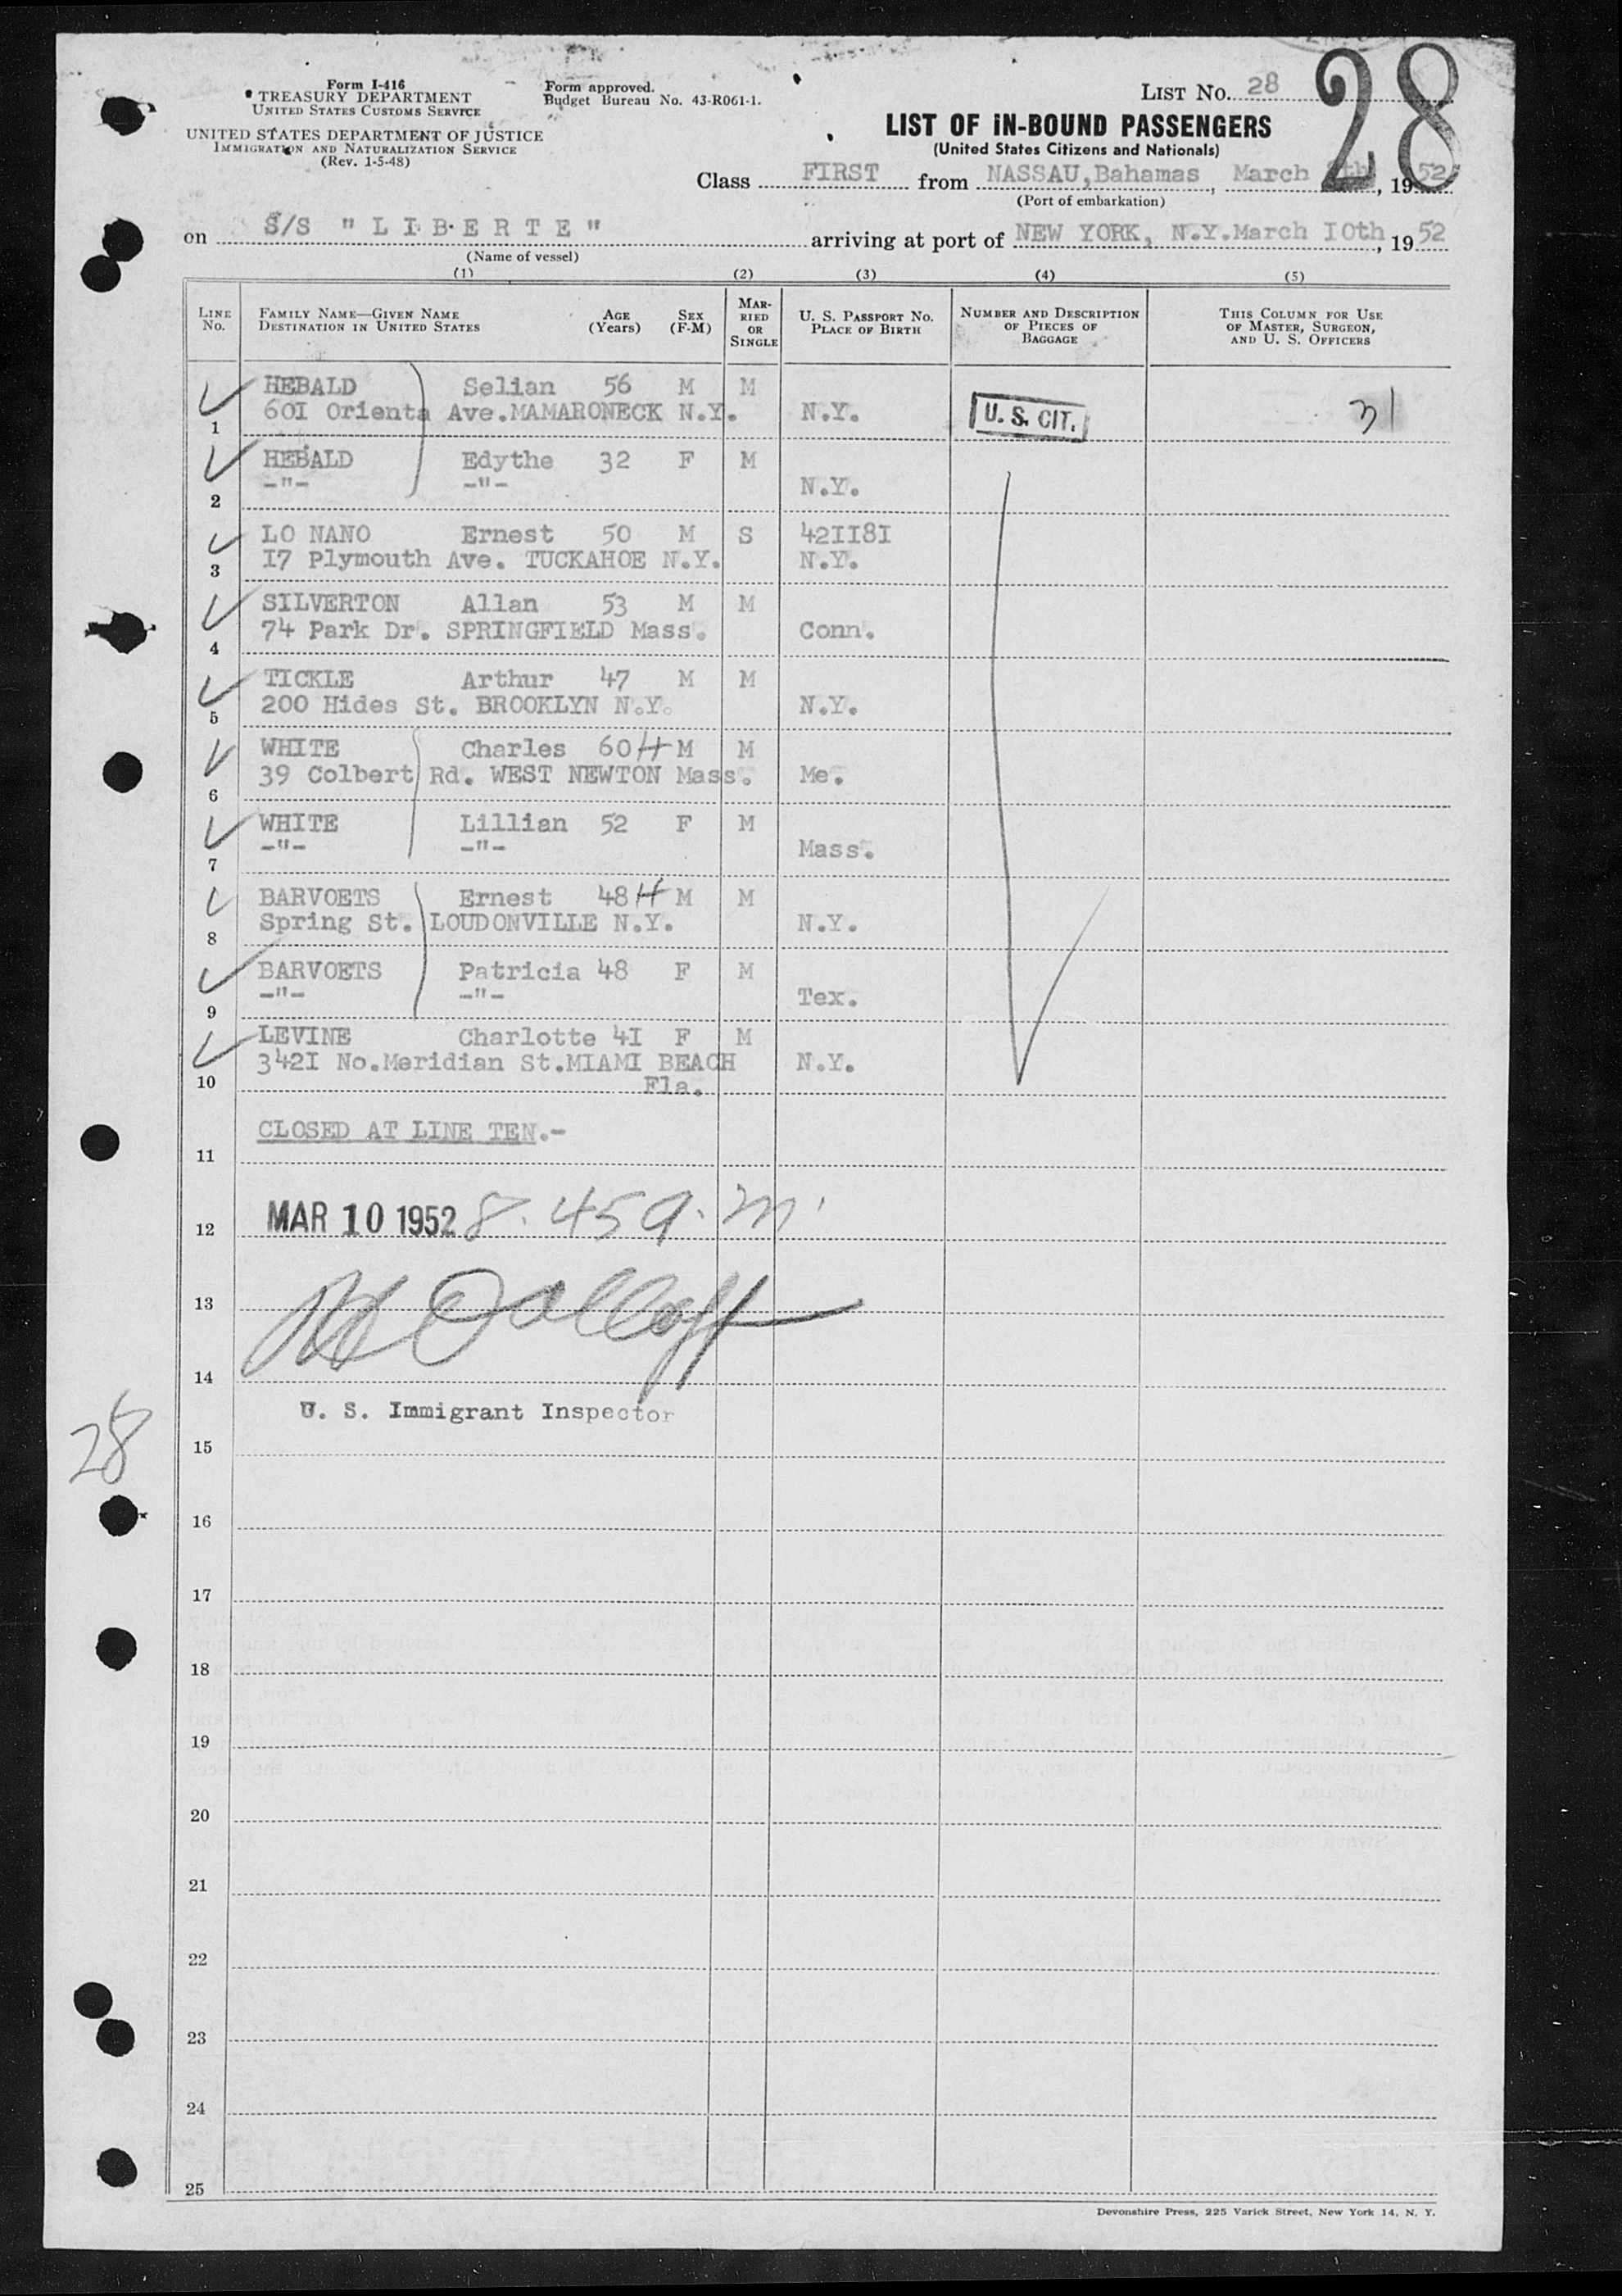 Form I-416
TREASURY DEPARTMENT
UNITED STATES CUSTOMS SERVICE
UNITED STATES DEPARTMENT OF JUSTICE
IMMIGRATION AND NATURALIZATION SERVICE
(Rev. 1-5-48)
Form approved.
Budget Bureau No. 43-R061-1.
LIST NO. 28
28
LIST OF IN-BOUND PASSENGERS
(United States Citizens and Nationals)
Class FIRST from NASSAU, Bahamas, March , 1952
(Port of embarkation)
on S/S "LIBERTE" arriving at port of NEW YORK, N.Y. March 10th, 1952
(Name of vessel)
(1) (2) (3) (4) (5)
LINE No. FAMILY NAME—GIVEN NAME DESTINATION IN UNITED STATES AGE (Years) SEX (F-M) MARRIED OR SINGLE U. S. PASSPORT NO. PLACE OF BIRTH NUMBER AND DESCRIPTION OF PIECES OF BAGGAGE THIS COLUMN FOR USE OF MASTER, SURGEON, AND U. S. OFFICERS
HEBALD Selian 56 M M
1 601 Orienta Ave. MAMARONECK N.Y. N.Y. U. S. CIT. 31
HEBALD Edythe 32 F M
2 -"- -"- N.Y.
LO NANO Ernest 50 M S 421181
3 17 Plymouth Ave. TUCKAHOE N.Y. N.Y.
SILVERTON Allan 53 M M
4 74 Park Dr. SPRINGFIELD Mass. Conn.
TICKLE Arthur 47 M M
5 200 Hides St. BROOKLYN N.Y. N.Y.
WHITE Charles 60 H M M
6 39 Colbert Rd. WEST NEWTON Mass. Me.
WHITE Lillian 52 F M
7 -"- -"- Mass.
BARVOETS Ernest 48 H M M
8 Spring St. LOUDONVILLE N.Y. N.Y.
BARVOETS Patricia 48 F M
9 -"- -"- Tex.
LEVINE Charlotte 41 F M
10 3421 No. Meridian St. MIAMI BEACH N.Y.
Fla.
CLOSED AT LINE TEN.-
11
12 MAR 10 1952 8.45 a.m.
13
14
U. S. Immigrant Inspector
28
15
16
17
18
19
20
21
22
23
24
25
Devonshire Press, 225 Varick Street, New York 14, N. Y.